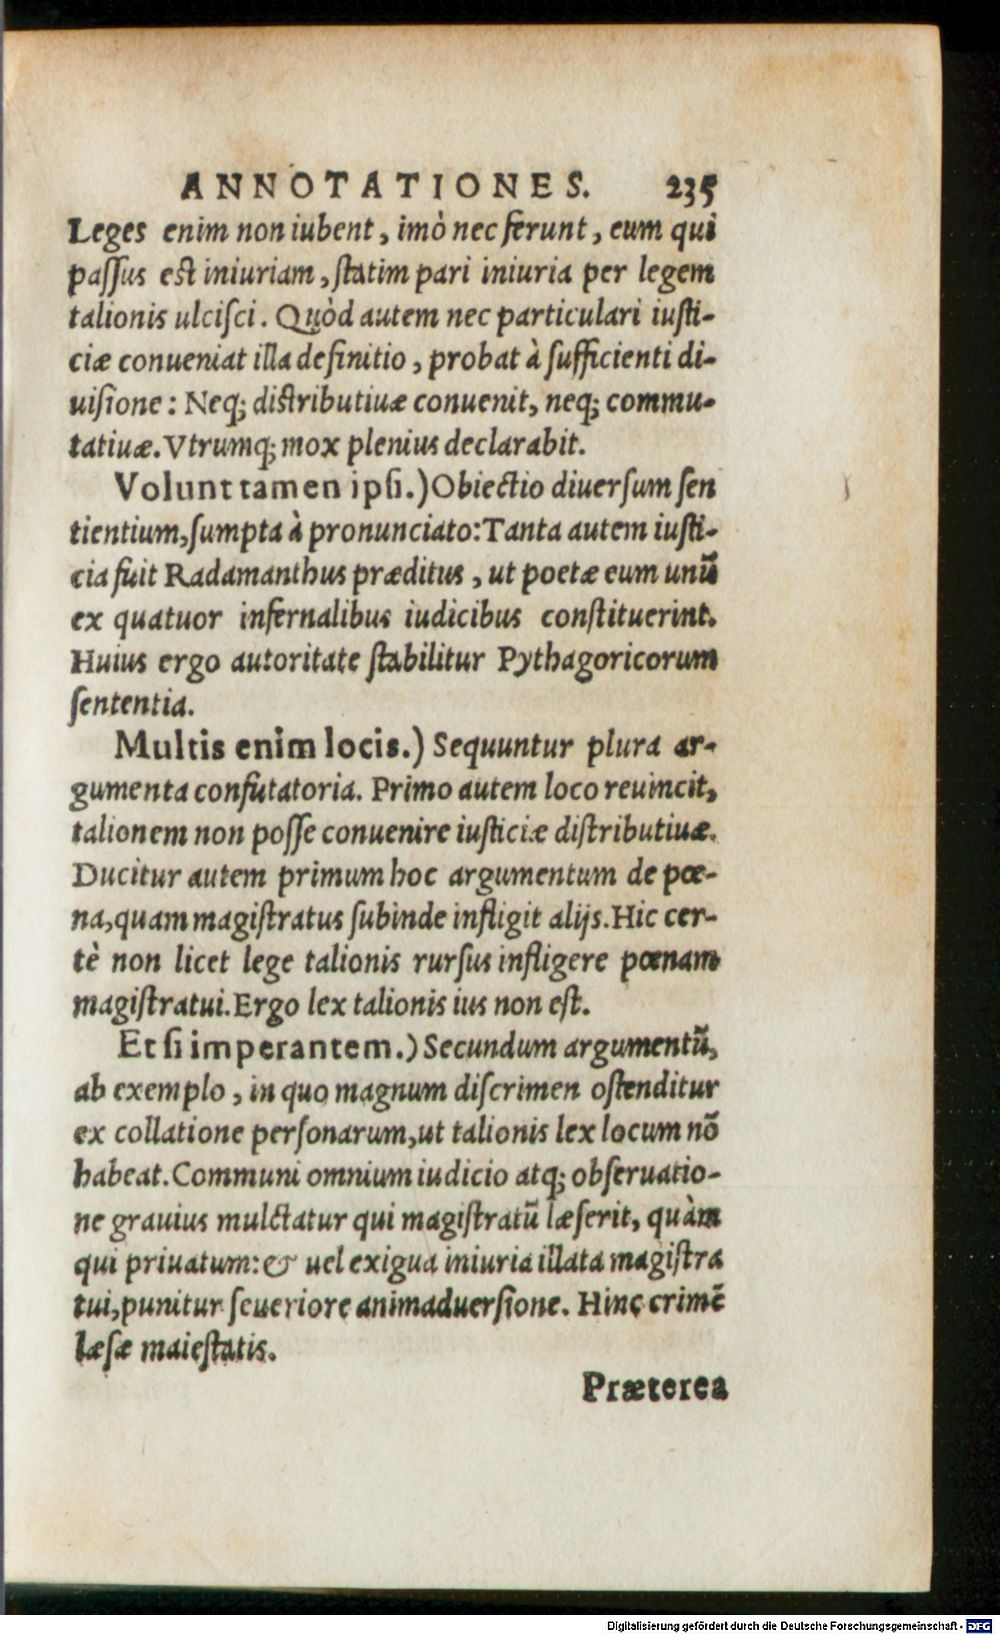 ANNOTATIONES. 235
Leges enim non iubent, imò nec ferunt, eum qui
passus est iniuriam, statim pari iniuria per legem
talionis ulcisci. Quòd autem nec particulari iusti-
ciæ conueniat illa definitio, probat à sufficienti di-
uisione: Neq; distributiuæ conuenit, neq; commu-
tatiuæ. Vtrumq; mox plenius declarabit.
Volunt tamen ipsi.) Obiectio diuersum sen
tientium, sumpta à pronunciato: Tanta autem iusti-
cia fuit Radamanthus præditus, ut poetæ eum unũ
ex quatuor infernalibus iudicibus constituerint.
Huius ergo autoritate stabilitur Pythagoricorum
sententia.
Multis enim locis.) Sequuntur plura ar-
gumenta confutatoria. Primo autem loco reuincit,
talionem non posse conuenire iusticiæ distributiuæ.
Ducitur autem primum hoc argumentum de pœ-
na, quam magistratus subinde infligit alijs. Hic cer-
tè non licet lege talionis rursus infligere pœnam
magistratui. Ergo lex talionis ius non est.
Et si imperantem.) Secundum argumentũ,
ab exemplo, in quo magnum discrimen ostenditur
ex collatione personarum, ut talionis lex locum nõ
habeat. Communi omnium iudicio atq; obseruatio-
ne grauius mulctatur qui magistratũ læserit, quàm
qui priuatum: & uel exigua iniuria illata magistra
tui, punitur seueriore animaduersione. Hinc crimẽ
læsæ maiestatis.
Præterea
Digitalisierung gefördert durch die Deutsche Forschungsgemeinschaft - DFG